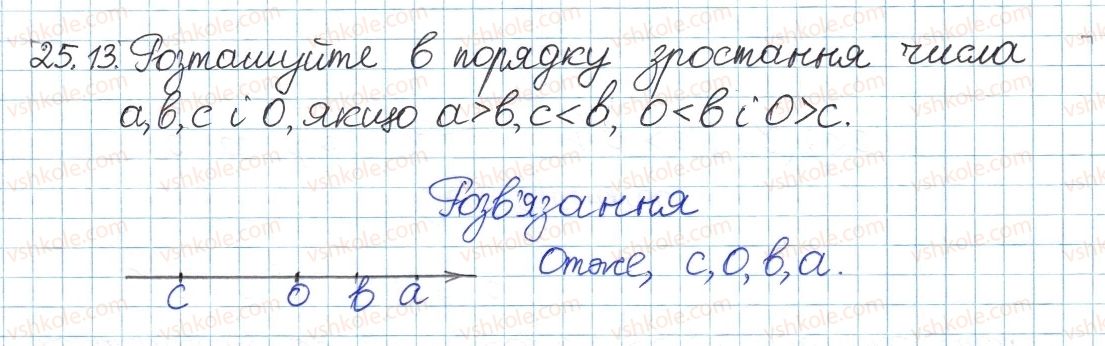 25.13. Розташуйте в порядку зростання числа
a, b, c і 0, якщо a>b, c<b, 0<b і 0>c.
Розв'язання
Отже, c, 0, b, a.
c 0 b a